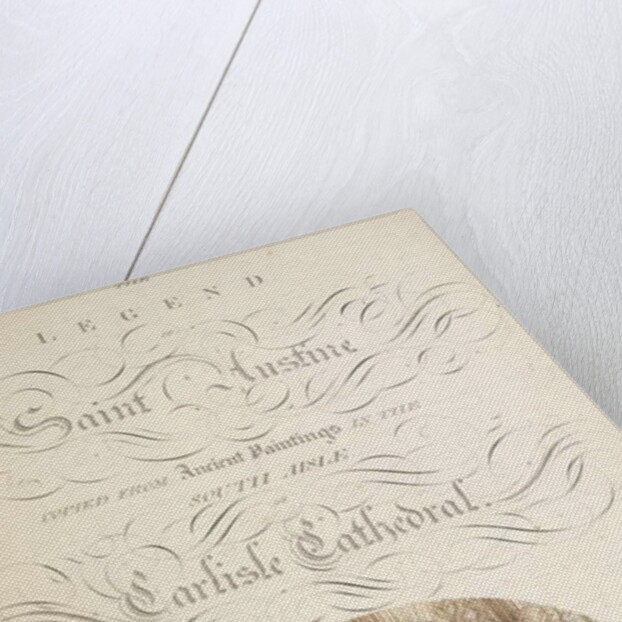 THE
LEGEND
OF
Saint Austine
COPIED FROM Ancient Paintings IN THE
SOUTH AISLE
OF
Carlisle Cathedral.